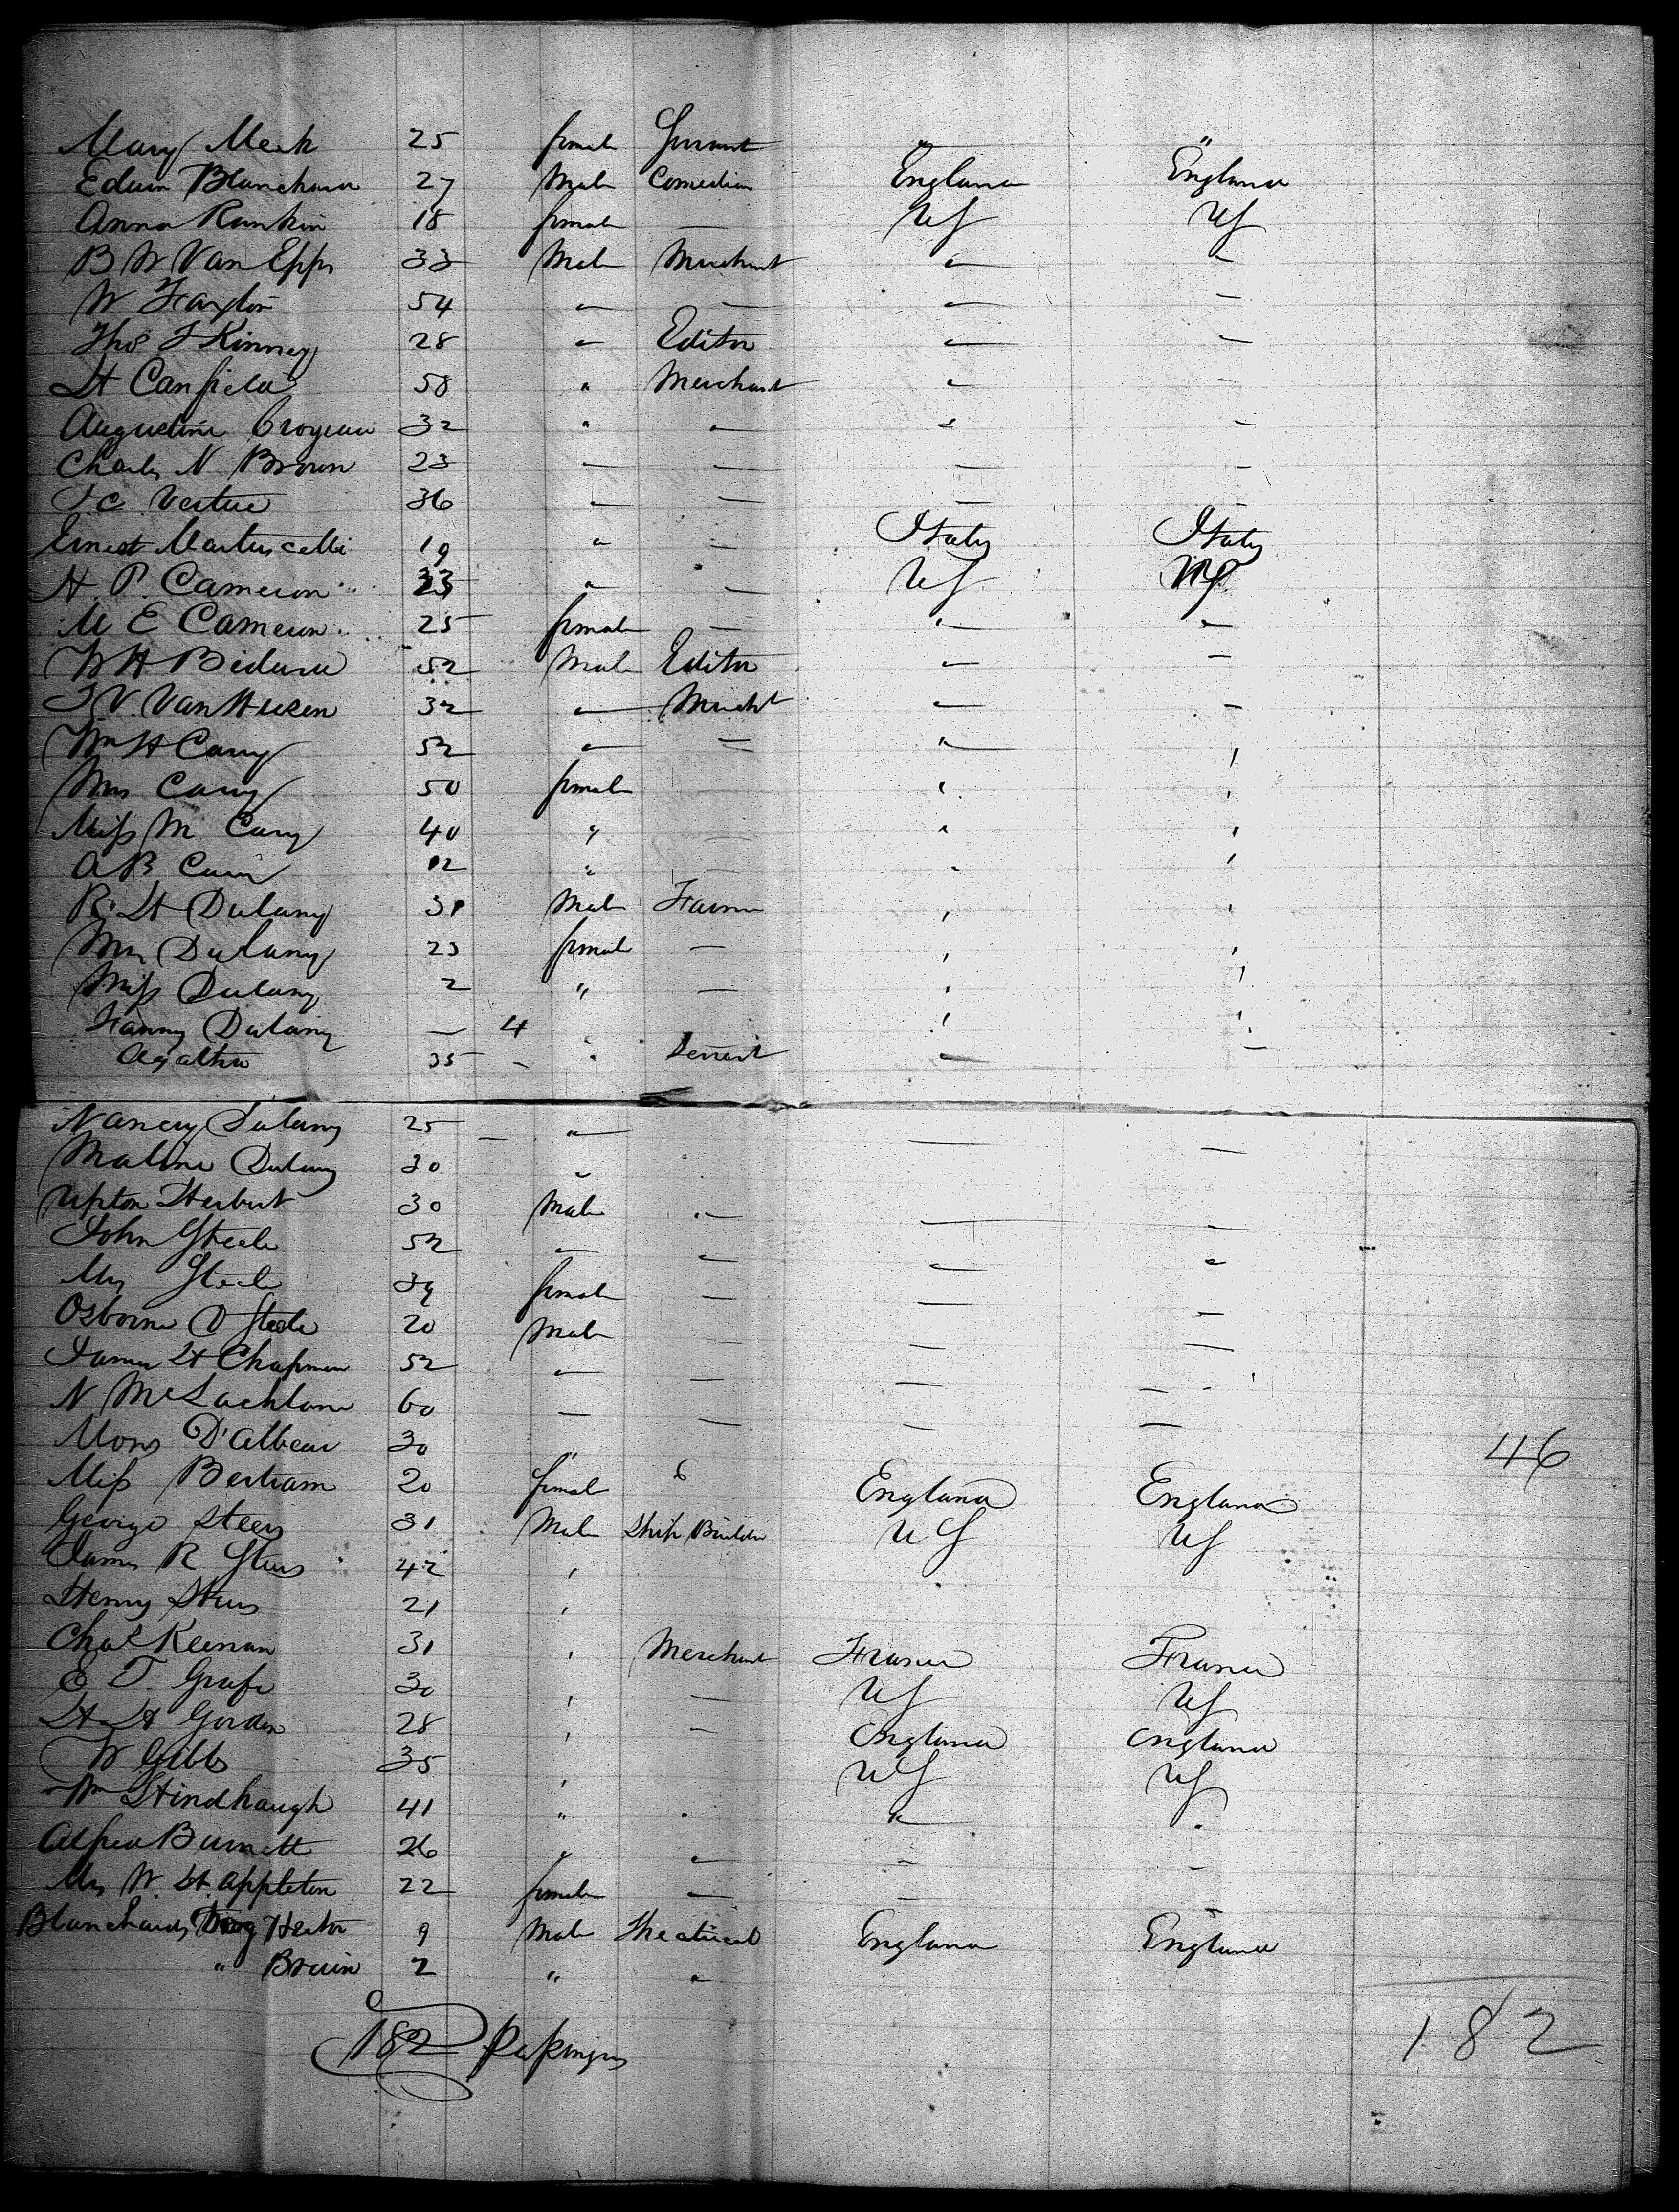 Mary Meek 25 female Servant " "
Edwin Blanchard 27 Male Comedian England England
Anna Rankin 18 female — US US
B W Van Epps 33 Male Merchant " "
W 54 " — " —
Thos F Kinney 28 " Editor " —
H Canfield 58 " Merchant " —
Augustine 32 " " " —
Charles N Brown 23 — — — —
J. C. Vertue 36 — — — —
Ernest Martuscelli 19 " — Italy Italy
H. P. Cameron 33 " — US US
M E Cameron 25 female — " "
W H Bidard 52 Male Editor " —
T V. Van Husen 32 " Mercht " —
Wm H Cary 52 " — " '
Mrs Cary 50 female ' '
Miss M Cary 40 " — " '
A B Cary 12 " " '
R. H Dulany 31 Male Farmer ' '
Mrs Dulany 23 female — ' '
Miss Dulany 2 " — ' '
Fanny Dulany — 4 ' '
Agatha 35 — " Servant " —
Nancy Dulany 25 — " — —
Maline Dulany 30 "
Upton Herbert 30 Male " — —
John Steele 52 " " " "
Mrs Steele 39 female — — —
Osborne D Steele 20 Male — —
James H Chapman 52 " — — — - '
N McLachlane 60 — — — —
Mons D'Albear 30 " 46
Miss Bertram 20 female England England
George Steers 31 Male Ship Builder US US
James R Steers 42 '
Henry Steers 21 '
Chas Keenan 31 ' Merchant France France
E T. Grafe 30 ' — US US
H H Gordon 28 ' — England England
W Gibbs 35 ' US US
Wm Hindhaugh 41 " " " "
Alfred Burnett 26 " " — —
Mrs W. H. Appleton 22 female " —
Blanchards Dog Hector 9 Male Theatrical England England
" Bruin 2 " "
182 Passengers 182